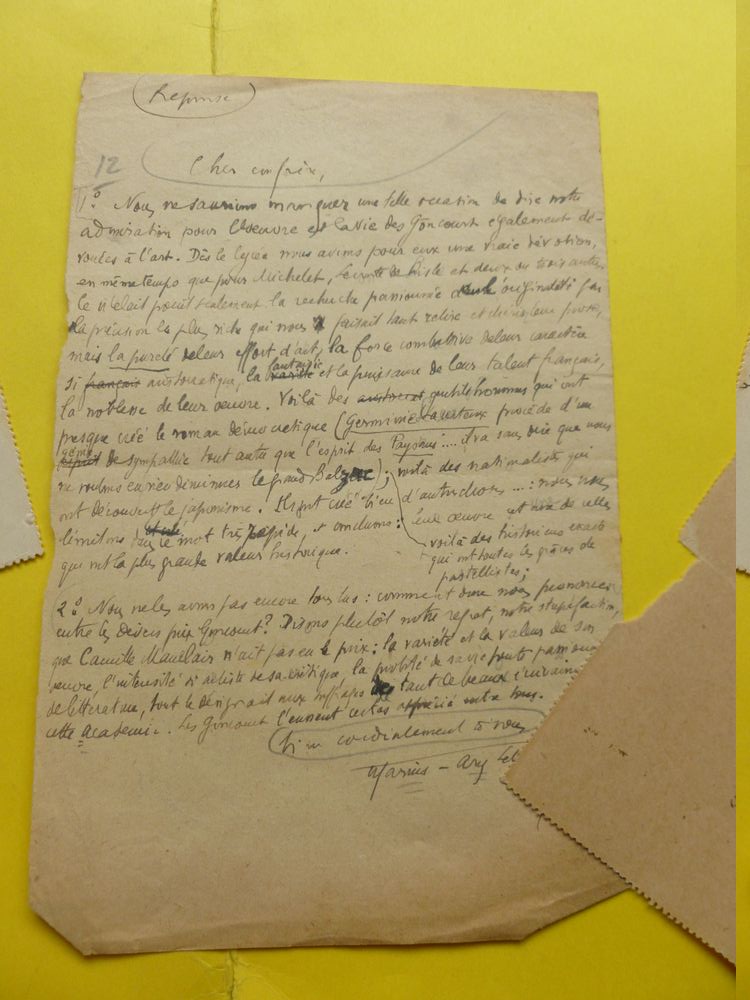 Réponse
12
Cher confrère,
1º Nous ne saurions manquer une telle occasion de dire notre
admiration pour l'oeuvre et la vie des Goncourt également dé-
voutés à l'art. Dès le lycée nous avions pour eux une vraie dévotion,
en même temps que pour Michelet, Leconte de Lisle et deux ou trois autres
ce n'était point seulement la recherche passionnée originalité
la précision la plus riche qui nous faisait tant relire leur prose,
mais la pureté de leur effort d'art, la force combattive de leur caractère
si français aristocratique, la fantaisie et la puissance de leur talent français,
la noblesse de leur oeuvre. Voilà des gentilshommes qui ont
presque créé le roman démocratique (Germinie Lacerteux procède d'un
de sympathie tout autre que l'esprit des Paysans.... il va sans dire que nous
ne voulons en rien diminuer le grand Balzac); voilà des nationalistes qui
ont découvert le japonisme. Ils ont créé bien d'autres choses ....: nous nous
limitons dans le mot très rapide, et concluons: leur oeuvre est une de celles
voilà des historiens exacts
qui ont toutes les grâces de
pastellistes;
qui ont la plus grande valeur historique.
2º Nous ne les avons pas encore tous lus: comment donc nous prononcer
entre les divers prix Goncourt? Disons plutôt notre regret, notre stupéfaction,
que Camille Mauclair n'ait pas eu le prix: la variété et la valeur de son
oeuvre, l'intensité si artiste de sa critique, la probité de sa vie toute
de littérature, tout le désignait aux suffrages de tant de beaux écrivains
cette Académie. Les Goncourt l'eussent certes apprécié entre tous.
Bien cordialement à vous
Marius - Ary